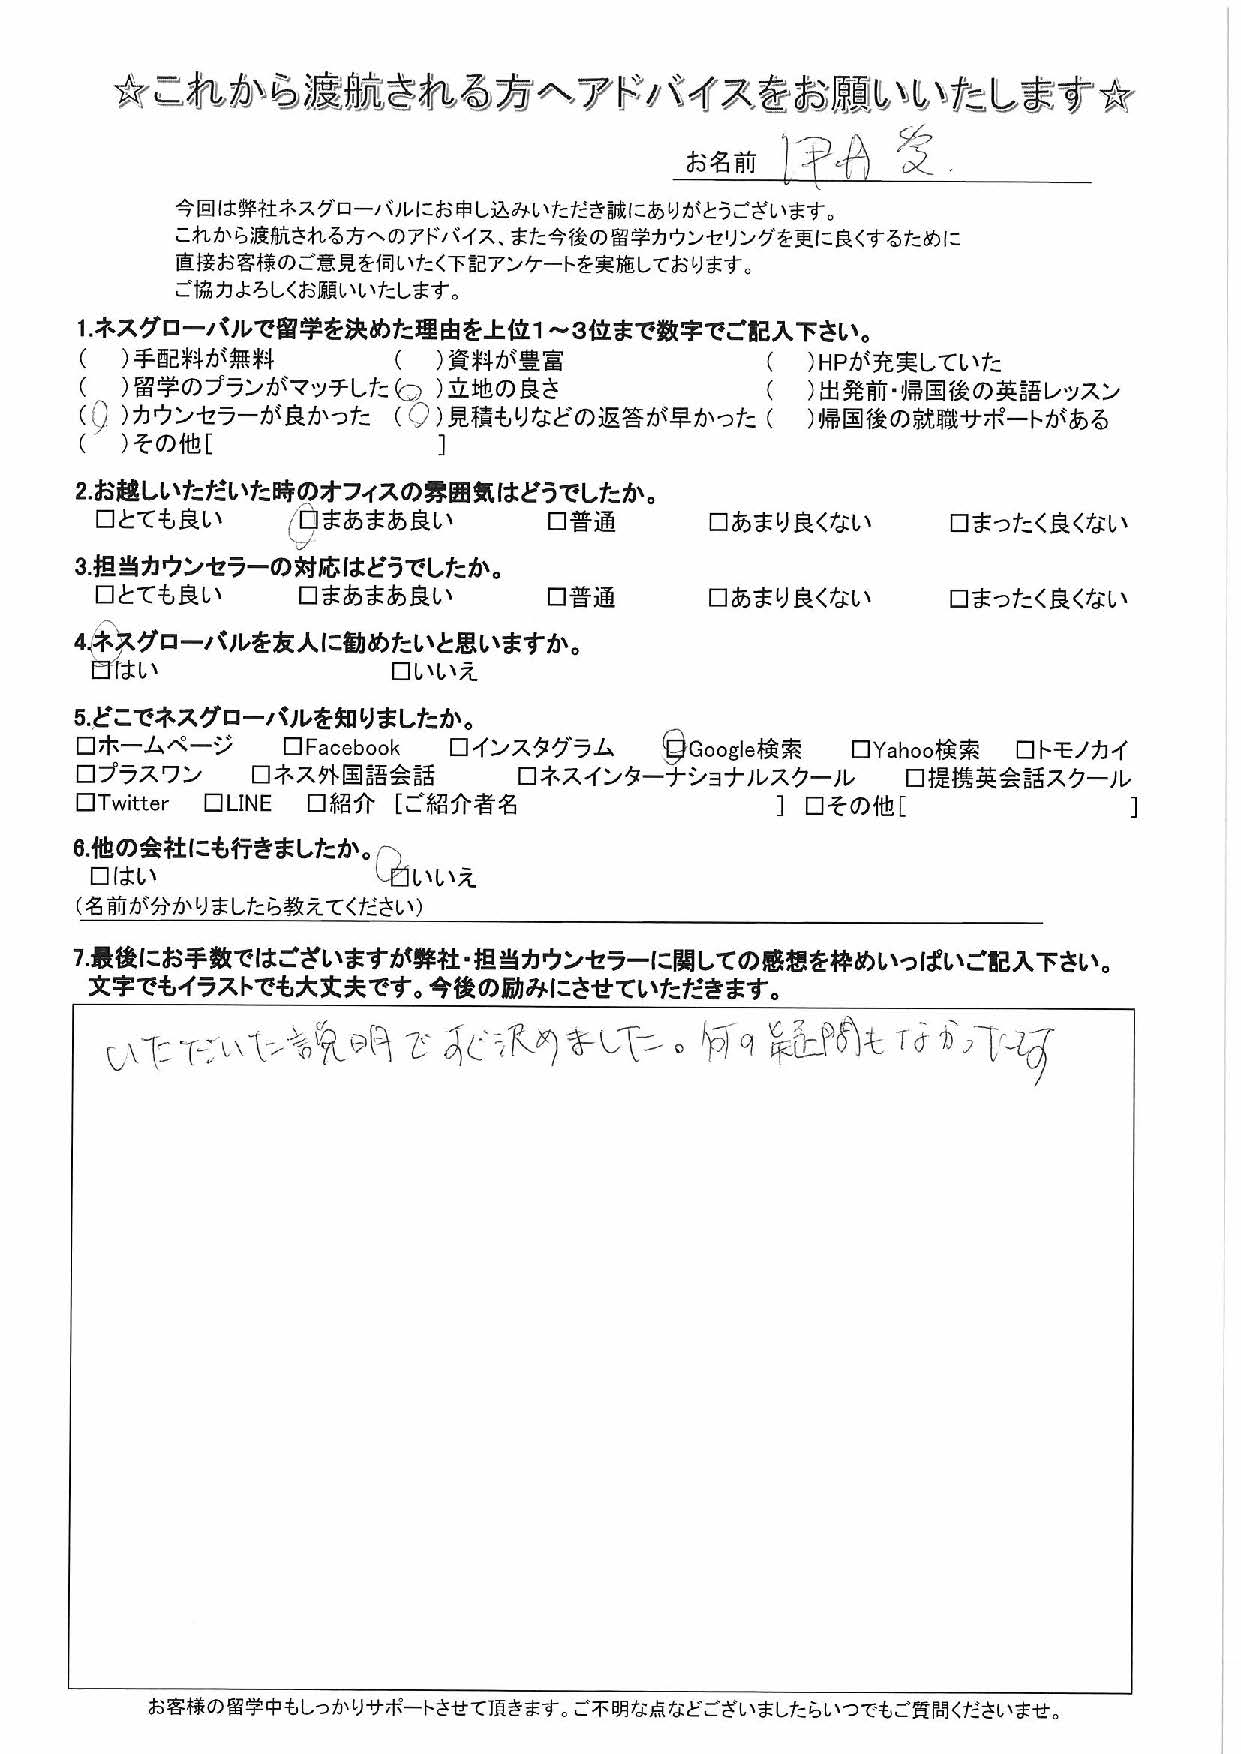 ☆これから渡航される方へアドバイスをお願いいたします☆
お名前 伊丹 愛
今回は弊社ネスグローバルにお申し込みいただき誠にありがとうございます。
これから渡航される方へのアドバイス、また今後の留学カウンセリングを更に良くするために
直接お客様のご意見を伺いたく下記アンケートを実施しております。
ご協力よろしくお願いいたします。
1.ネスグローバルで留学を決めた理由を上位1～3位まで数字でご記入下さい。
( )手配料が無料 ( )資料が豊富 ( )HPが充実していた
( )留学のプランがマッチした(○)立地の良さ ( )出発前・帰国後の英語レッスン
(○)カウンセラーが良かった (○)見積もりなどの返答が早かった ( )帰国後の就職サポートがある
( )その他[ ]
2.お越しいただいた時のオフィスの雰囲気はどうでしたか。
□とても良い □まあまあ良い □普通 □あまり良くない □まったく良くない
3.担当カウンセラーの対応はどうでしたか。
□とても良い □まあまあ良い □普通 □あまり良くない □まったく良くない
4.ネスグローバルを友人に勧めたいと思いますか。
□はい □いいえ
5.どこでネスグローバルを知りましたか。
□ホームページ □Facebook □インスタグラム □Google検索 □Yahoo検索 □トモノカイ
□プラスワン □ネス外国語会話 □ネスインターナショナルスクール □提携英会話スクール
□Twitter □LINE □紹介 [ご紹介者名 ] □その他[ ]
6.他の会社にも行きましたか。
□はい □いいえ
(名前が分かりましたら教えてください)
7.最後にお手数ではございますが弊社・担当カウンセラーに関しての感想を枠めいっぱいご記入下さい。
文字でもイラストでも大丈夫です。今後の励みにさせていただきます。
いただいた説明ですぐ決めました。何の疑問もなかったです
お客様の留学中もしっかりサポートさせて頂きます。ご不明な点などございましたらいつでもご質問くださいませ。